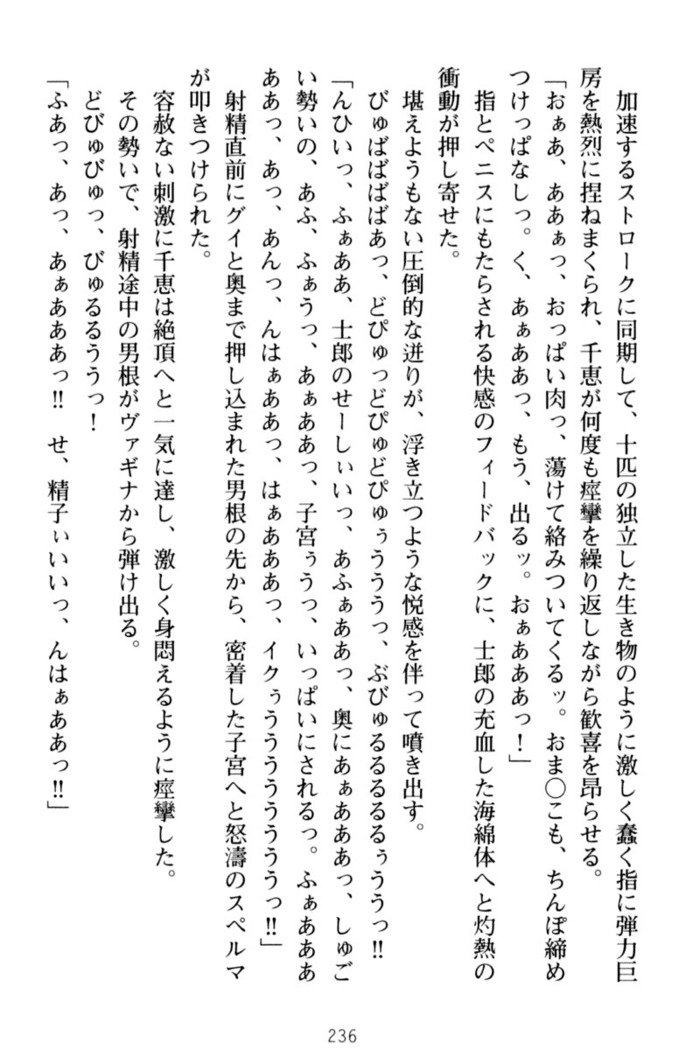 加速するストロークに同期して、十匹の独立した生き物のように激しく蠢く指に弾力巨
房を熱烈に捏ねまくられ、千恵が何度も痙攣を繰り返しながら歓喜を昂らせる。
「おぁあ、ああぁっ、おっぱい肉っ、蕩けて絡みついてくるッ。おま〇こも、ちんぽ締め
つけっぱなしっ。く、あぁああっ、もう、出るッ。おぁあああっ！」
　指とペニスにもたらされる快感のフィードバックに、士郎の充血した海綿体へと灼熱の
衝動が押し寄せた。
　堪えようもない圧倒的な迸りが、浮き立つような悦感を伴って噴き出す。
　びゅばばばばあっ、どぴゅっどぴゅどぴゅぅうううっ、ぶびゅるるるるるぅううっ‼
「んひいっ、ふぁああ、士郎のせーしぃいっ、あふぁああっ、奥にあぁあああっ、しゅご
い勢いの、あふ、ふぁうっ、あぁああっ、子宮ぅうっ、いっぱいにされるっ。ふぁあああ
ああっ、あっ、あんっ、んはぁああっ、はぁあああっ、イクぅうううううううっ‼」
　射精直前にグイと奥まで押し込まれた男根の先から、密着した子宮へと怒濤のスペルマ
が叩きつけられた。
　容赦ない刺激に千恵は絶頂へと一気に達し、激しく身悶えるように痙攣した。
　その勢いで、射精途中の男根がヴァギナから弾け出る。
　どびゅびゅっ、びゅるるううっ！
「ふあっ、あっ、あぁあああっ‼　せ、精子ぃいいっ、んはぁああっ‼」
236